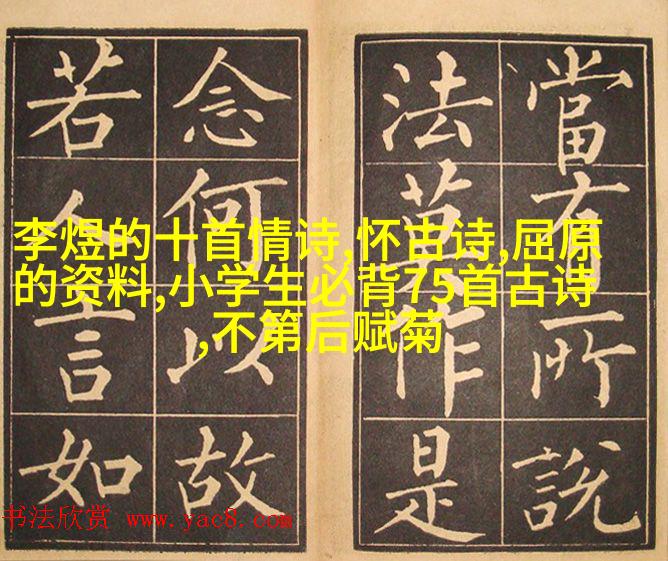 當有所說
法莫作是
念何以故
若人言如
李煜的十首情诗,怀古诗,屈原
的资料,小学生必背75首古诗
,不第后赋菊
书法欣赏 www.yac8.com